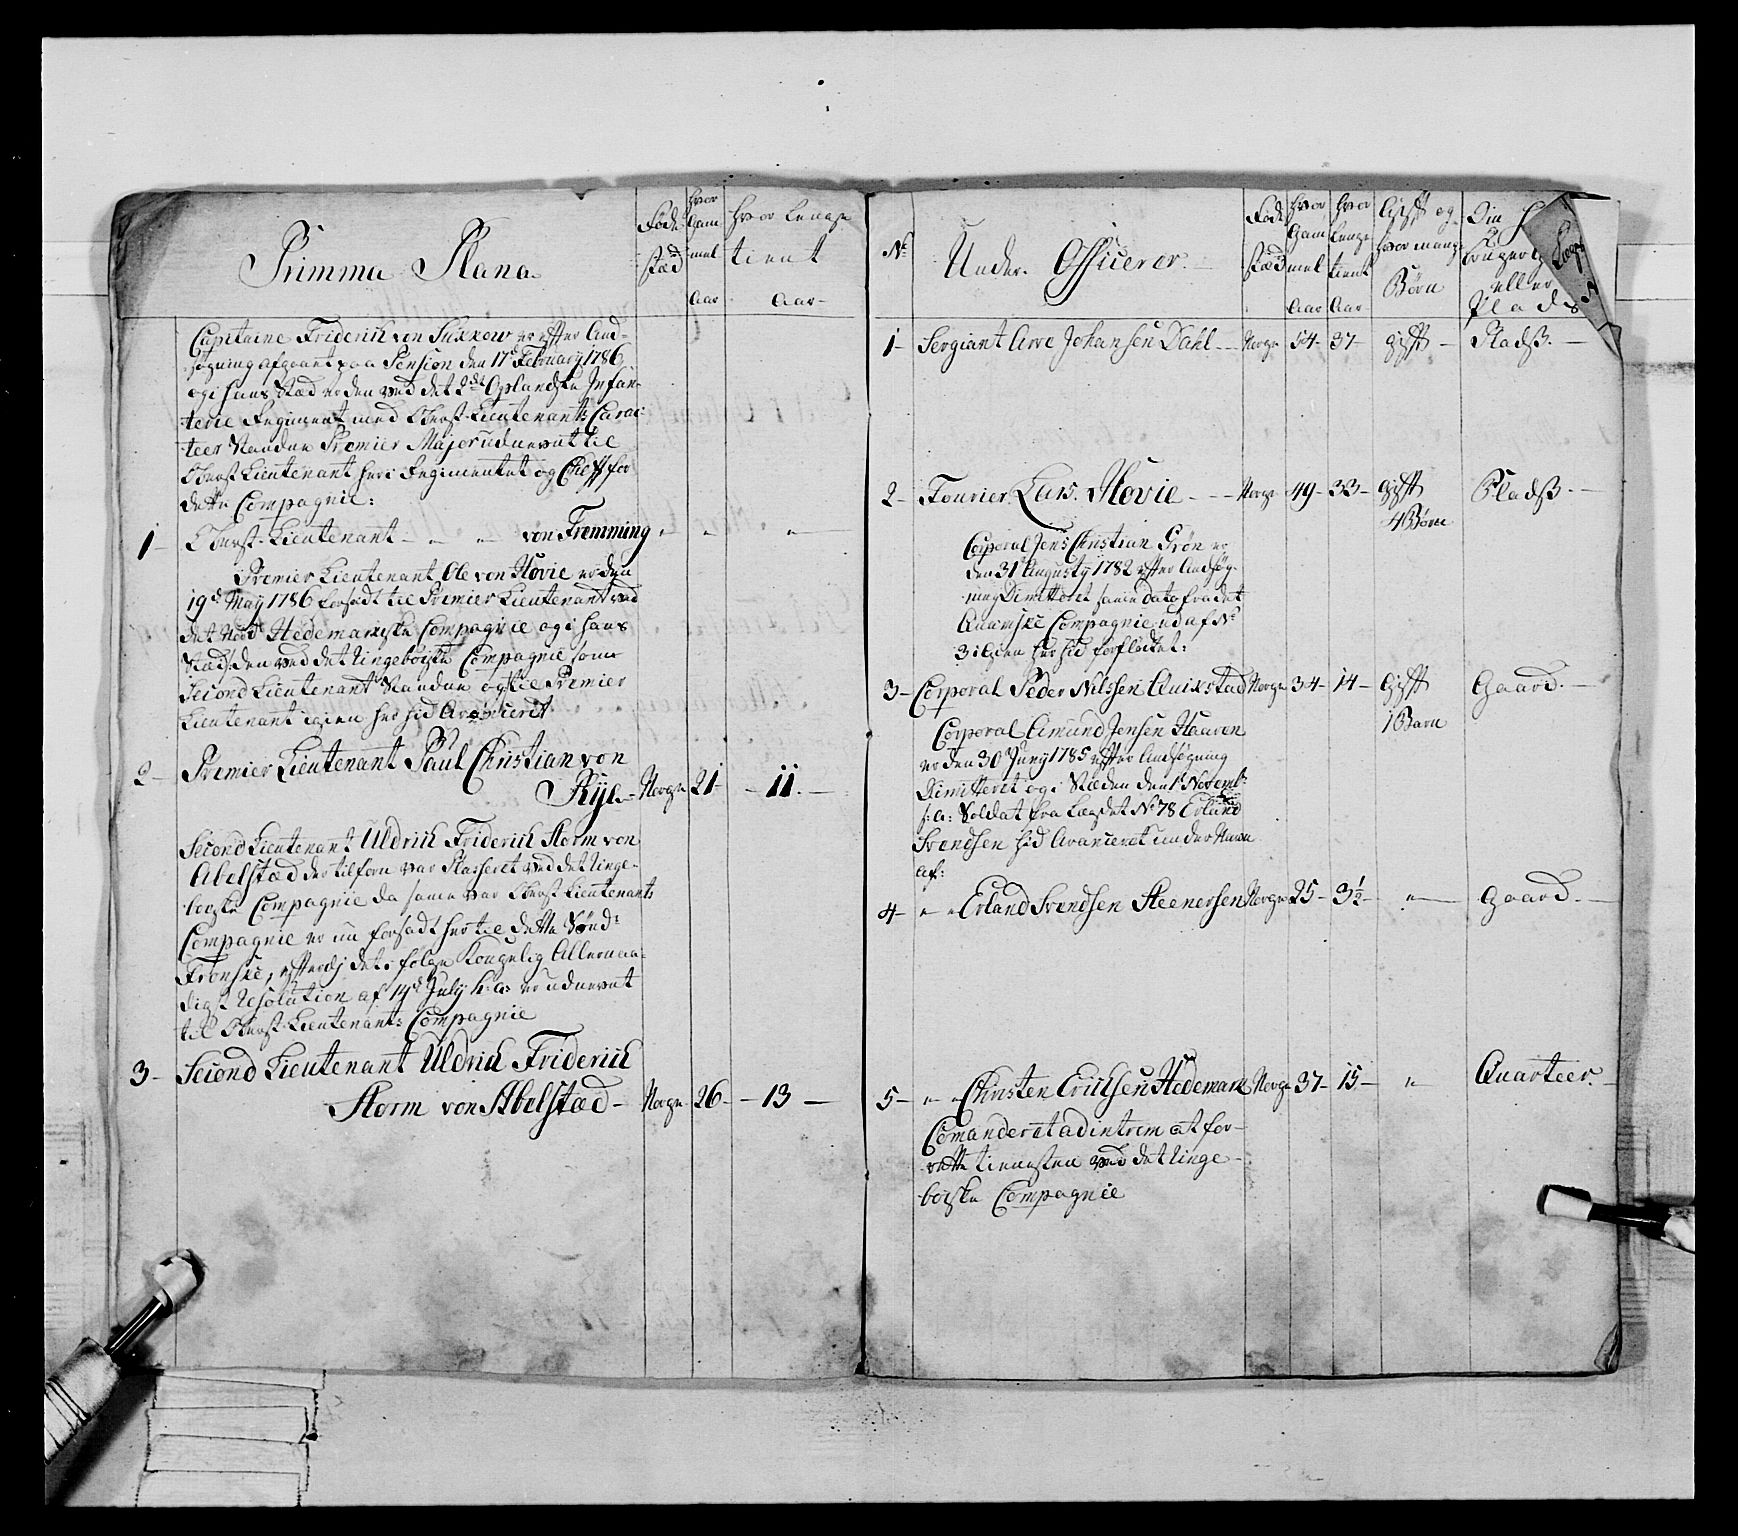 Primma Plana
Føde
stæd
hvor
Gam
mel
Aar
hvor Lenge
tient
Aar
Capitaine Friderich von Suckow er efter And-
søgning afgaaet paa Pension den 17de February 1786
og i hans Stæd er den ved det 2det Oplandske Infan-
terie Regiment med Oberst-Lieutenants Carac-
teer staaende Premier Major udnevnt til
Oberst Lieutenant her i Regimentet og Cheff for
dette Compagnie:
1- Oberst-Lieutenant - " " von Fremming " " "
Premier Lieutenant Ole von Hovie er den
19de May 1786 forsadt til Premier Lieutenant ved
det Nord Hedemarkske Compagnie og i hans
Stæd den ved det Ringeboiske Compagnie som
Second Lieutenant staaende og til Premier
Lieutenant igien her hid Avanceret
2- Premier Lieutenant Paul Christian von
Rye - Norge 21 - 11 -
Second Lieutenant Uldrich Friderich Storm von
Abelstæd der tilforn var Plasseret ved det Ringe-
boiske Compagnie da samme var Oberst Lieutenants
Compagnie er nu forsadt her til dette Sønd:
Fronske, efterdj det i følge Kongelig Allernaa-
digst Resolution af 14de July h: a: er udnevnt
til Oberst-Lieutenants Compagnie
3- Second Lieutenant Uldrich Friderich
Storm von Abelstæd - Norge 26 - 13 -
No
Under Officerer
Føde
stæd
hvor
Gam
mel
Aar
hvor
lenge
tient
Aar
Gift og
hvor mange
Børn
Om
bruger
eller
Plads
1- Sergiant Arve Johansen Dahl - Norge 54 - 37 - gift - Pladß -
2- Fourier Lars Hovie - - - Norge 49 - 33 - gift Pladß -
4 Børn
Corporal Jens Christian Grøn er
den 31 Augusty 1782 efter Andsøg-
ning Dimitteret samme Dato fra det
Compagnie ud af No
3 igien her hid forfløttet:
3- Corporal Peder Nilssen Quixstad Norge 34 - 14 - Gift Gaard -
1 Barn
Corporal Amund Jensen Haaven
er den 30 Juny 1785 efter Andsøgning
Dimitteret og i Stæden den 1te Novemb:
s: a: Soldat fra Lægdet No 78 Erland
Svendsen hid Avanceret under Navn
af:
4- " " Erland Svendsen Steenersen Norge 25 - 3½ - " Gaard -
5- " " Christen Erichsen Hedemark Norge 37 - 15 - " Quarteer -
Comanderet ad intrem at for-
rette tienesten ved det Ringe-
boiske Compagnie